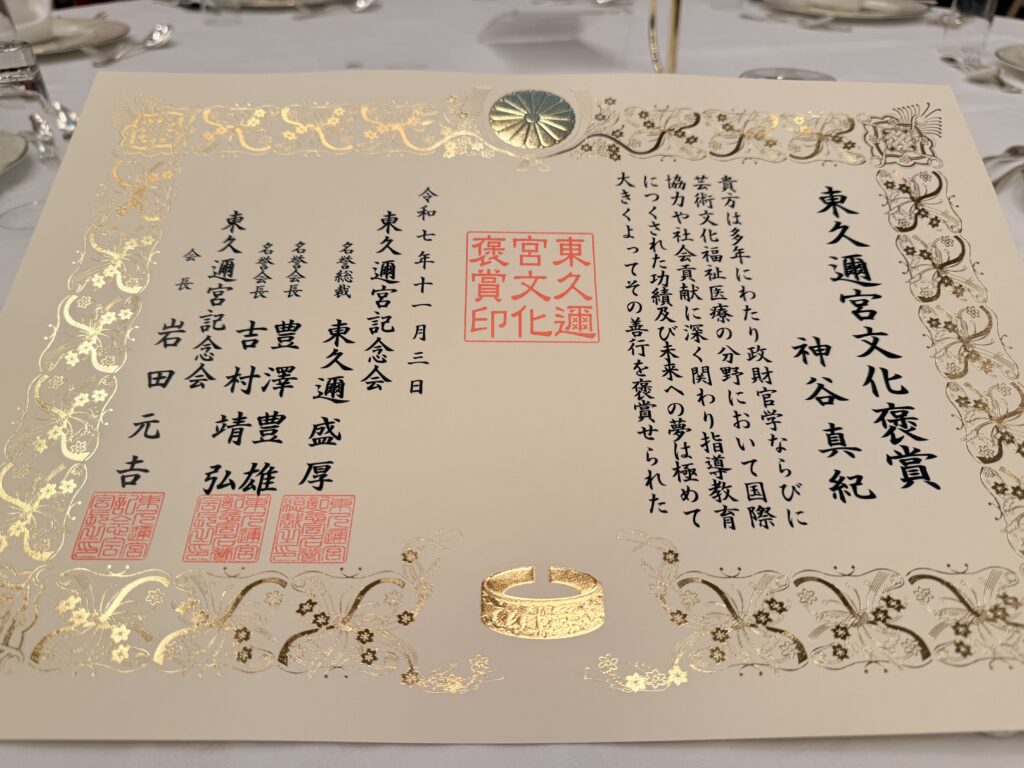 東久邇宮文化褒賞
神谷真紀
貴方は多年にわたり政財官学ならびに
芸術文化福祉医療の分野において国際
協力や社会貢献に深く関わり指導教育
につくされた功績及び未来への夢は極めて
大きくよってその善行を褒賞せられた
東久邇
宮文化
褒賞印
令和七年十一月三日
東久邇宮記念会
名誉総裁 東久邇盛厚
名誉会長 豊澤豊雄
名誉会長 吉村靖弘
東久邇宮記念会
会長 岩田元吉